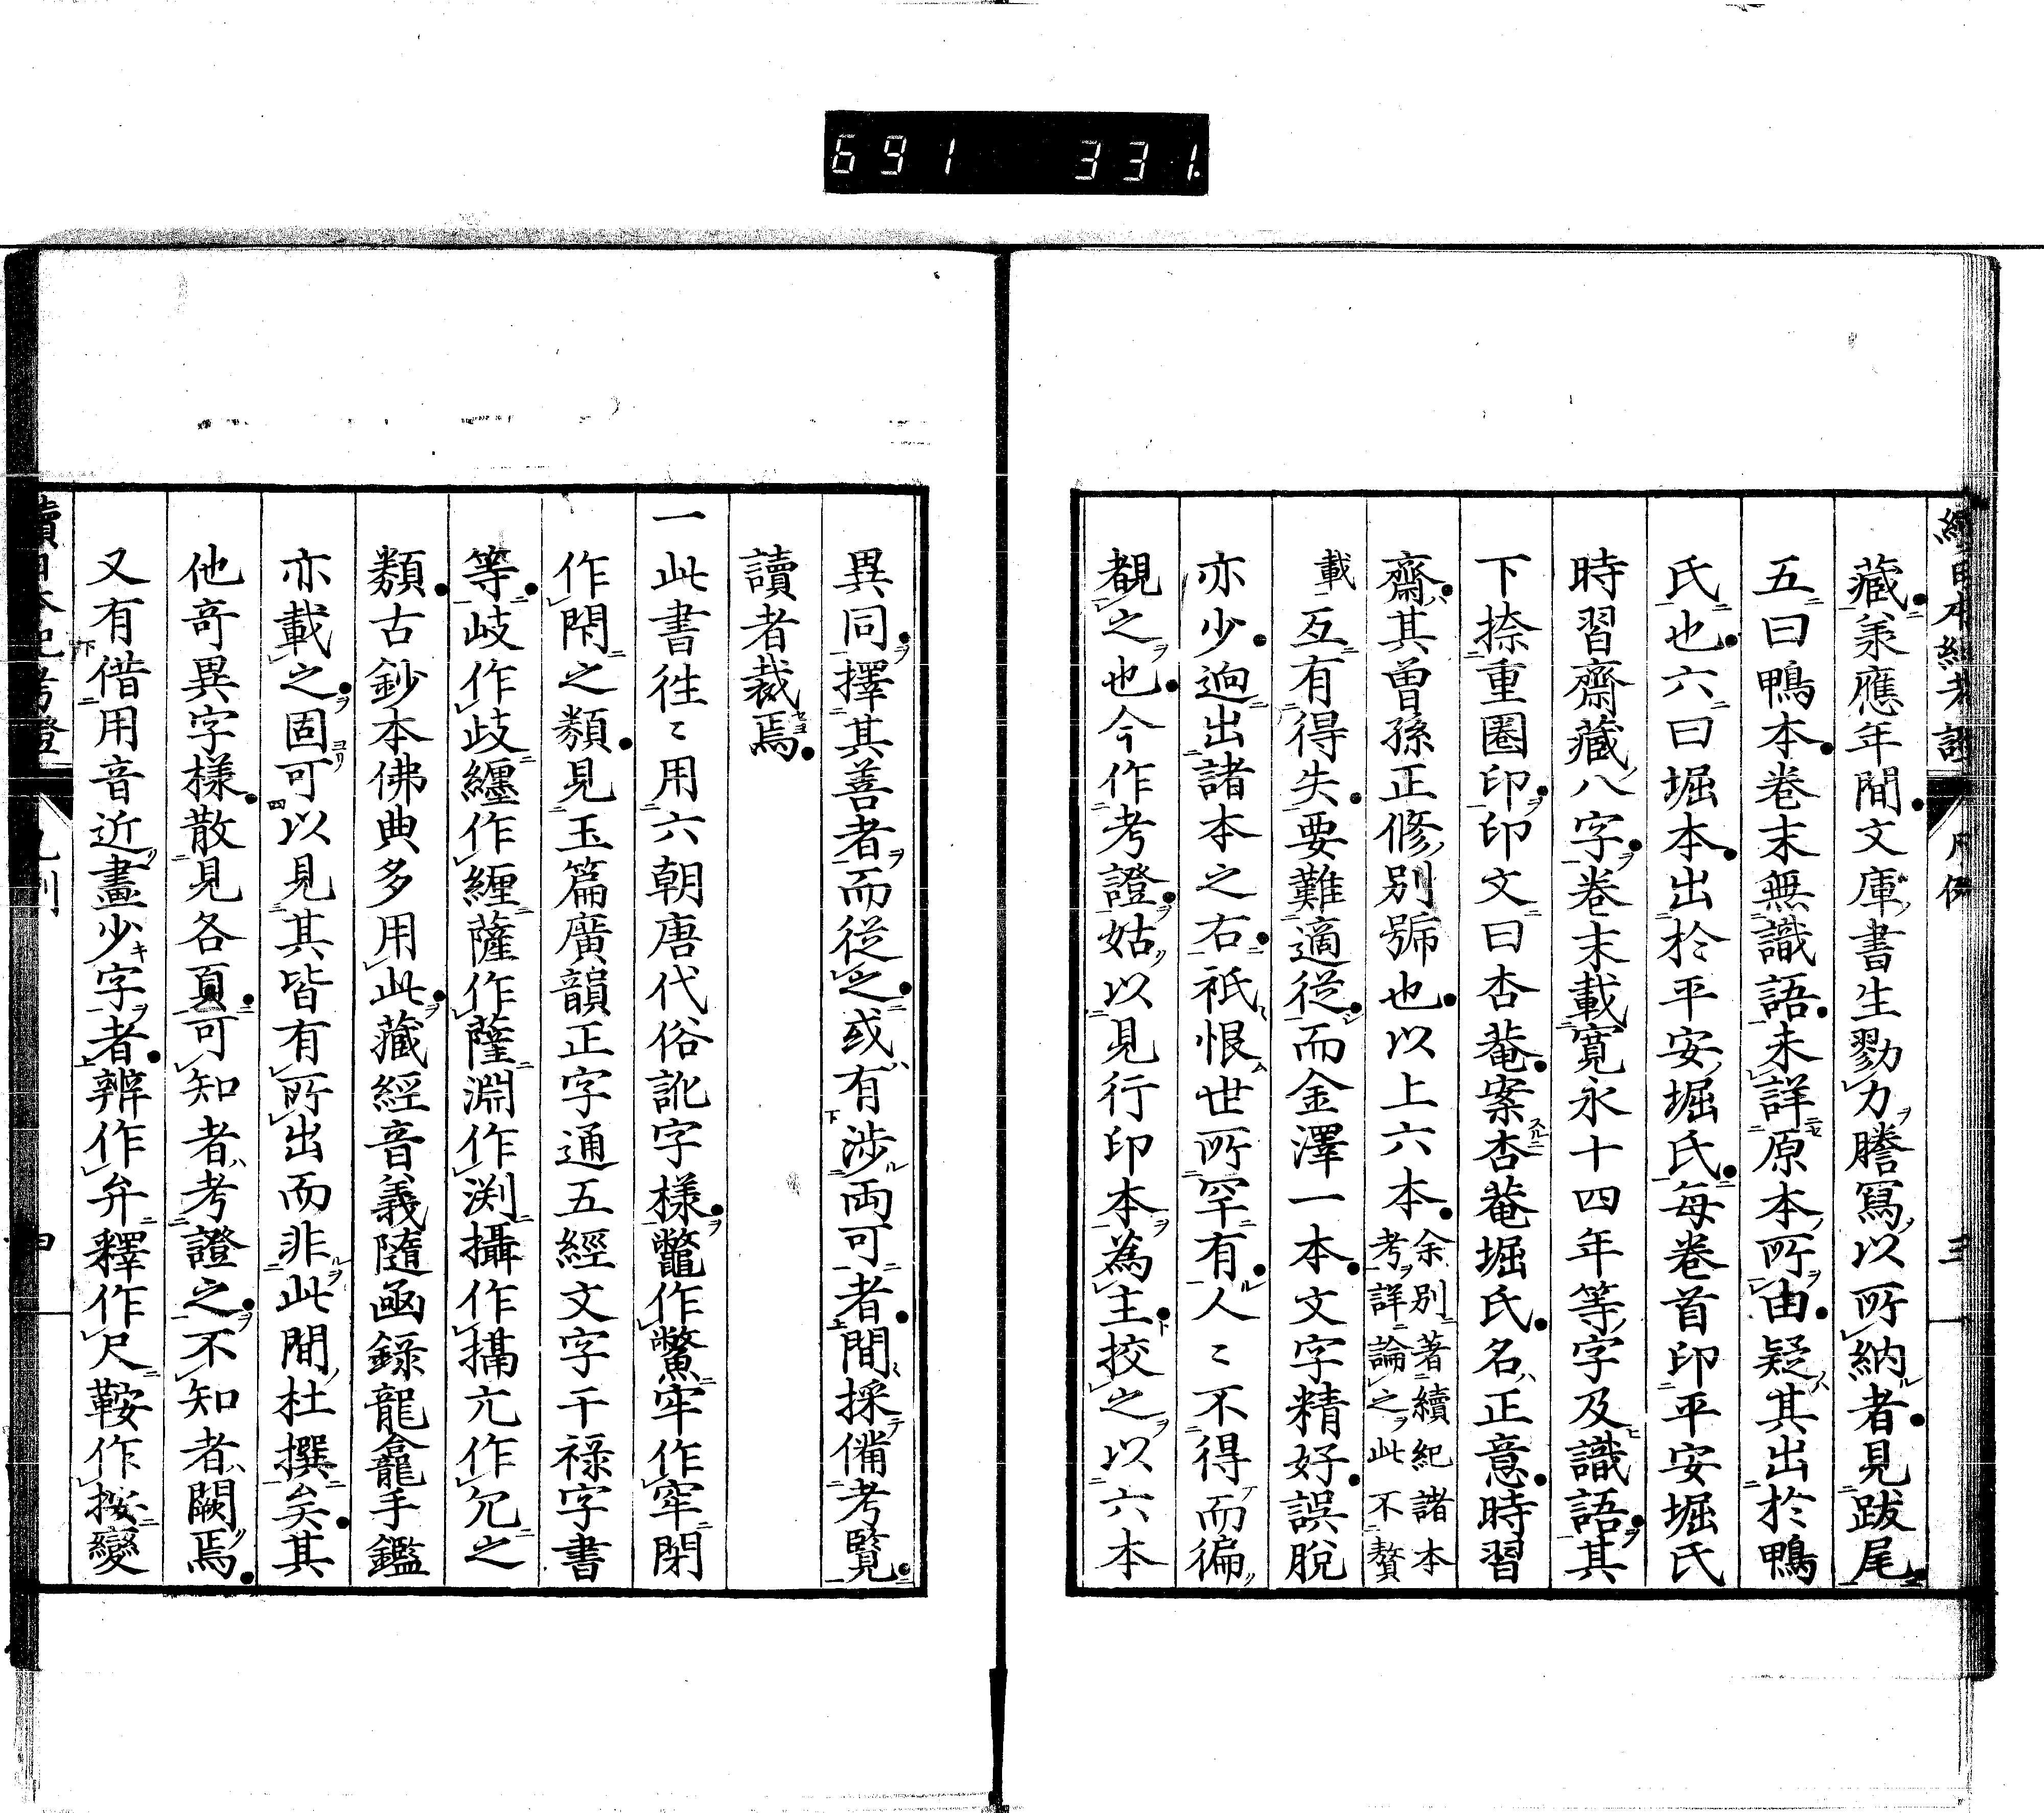 691 331.
藏、兼應年間文庫書生勠力謄寫以所納者、見跋尾、
五曰鴨本、卷末無識語、未詳原本所由、疑其出於鴨
氏也、六曰堀本、出於平安堀氏、每卷首印平安堀氏
時習齋藏八字、卷末載寬永十四年等字及識語、其
下捺重圈印、印文曰杏菴、案杏菴堀氏、名正意、時習
齋、其曾孫正修別號也、以上六本、余別著續紀諸本考詳論之此不贅
載 互有得失、要難適從、而金澤一本、文字精好、誤脫
亦少、逈出諸本之右、祇恨世所罕有、人〻不得而徧
覩之也、今作考證、姑以見行印本為主、挍之以六本
異同、擇其善者而從之、或有涉両可者、間採備考覽、
讀者裁焉、
一此書徃〻用六朝唐代俗訛字樣、鼈作鱉牢作窂閉
作閇之類、見玉篇廣韻正字通五經文字干祿字書
等、岐作歧纏作纒薩作薩淵作渕攝作搹亢作冗之
類、古鈔本佛典多用此、藏經音義隨凾錄龍龕手鑑
亦載之、固可以見其皆有所出而非此間杜撰矣、其
他竒異字樣、散見各頁、可知者考證之、不知者闕焉、
又有借用音近畫少字者、辨作弁釋作尺鞍作按變